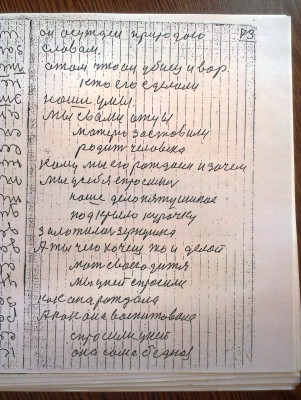 он осужден природаю
словам.
отом что он убиец и вор.
кто его сделали
наши умы.
мы свами отцы
матерь заставили
родит человека
Кому мы его рождаем и зачем
мы усебя спросили
наше дело петушиное
подкрыло курочку
золотил зернушка
А ты чего хочеш то и делай
мат сваео дитя
мы уней спросили
как она рождала
А как она воспитовала
спросили уней
она сама бедная